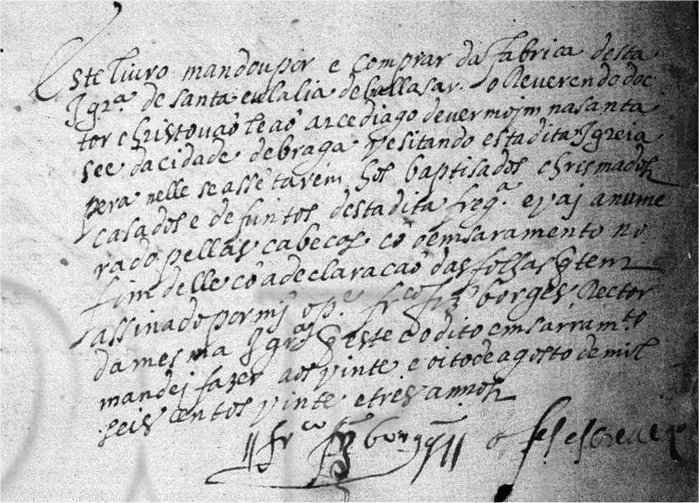 Este liuro mandou por e comprar da fabrica desta
Igrª. de santa eulalia de ballasar. o Reuerendo doc
tor christouaõ leaõ arcediago de vermojm na santa
see da cidade de braga vesitando esta dita Igreia
pera nelle se assẽtarem hos baptisados chrismados
casados e defuntos desta dita fregª. e vaj anume
rado pellas cabecas cõ õ emsaramento no
fim delle cõ a declaracaõ das folhas q̃ tem
assinado por mj o pᵉ. frᶜᵒ frz̃ borges Rector
da mesma Igrª q̃ este e o dito emsarramᵗᵒ
mandej fazer aos vinte e oito de agosto de mil
seis centos vinte e tres annos
frᶜᵒ frz̃ borges o fes escreuer